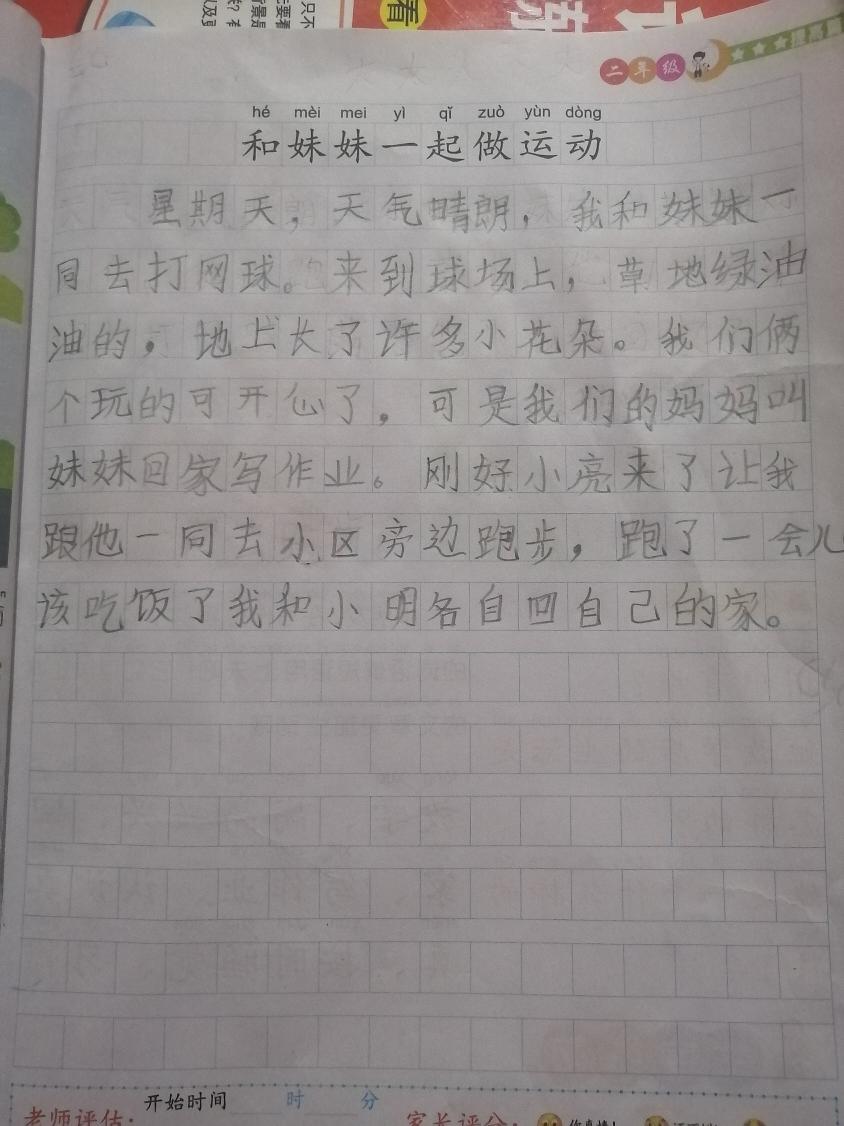 看
二年级
hé mèi mei yì qǐ zuò yùn dòng
和妹妹一起做运动
星期天，天气晴朗，我和妹妹一
同去打网球。来到球场上，草地绿油
油的，地上长了许多小花朵。我们俩
个玩的可开心了，可是我们的妈妈叫
妹妹回家写作业。刚好小亮来了让我
跟他一同去小区旁边跑步，跑了一会儿
该吃饭了我和小明各自回自己的家。
开始时间 时 分
老师评估：
家长评分：